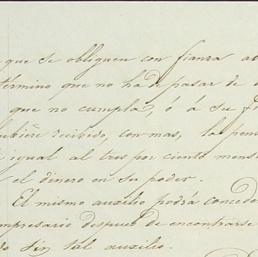 que se obliguen con fianza
término que no ha de pasar de
que no cumpla, ó á su
recibido, con mas, la
igual al tres por ciento
el dinero en su poder.
El mismo auxilio podrá
despues de encontrarse
sin tal auxilio.